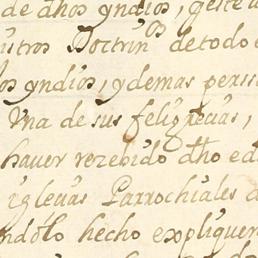 de dhos yndios, y este a
ustros Doctrin.os de todo
os yndios, y demas perss
Vna de sus feligrecias,
hauer rezebido dho ed
iglecias Parrochiales d
ndólo hecho expliquen